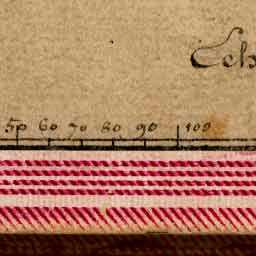 Ech
50 60 70 80 90 100